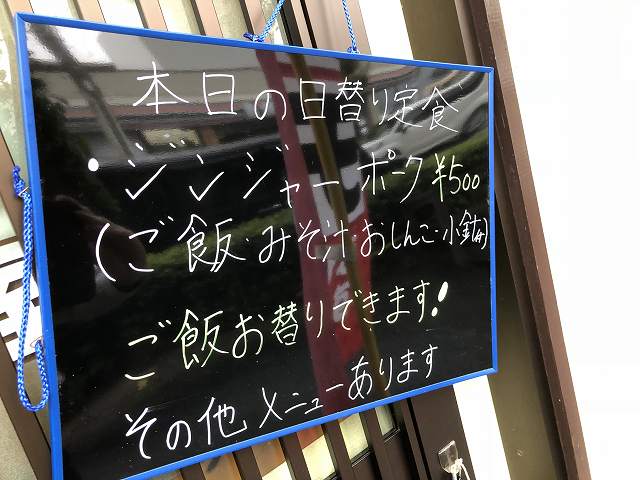 本日の日替り定食
・ジンジャーポーク ¥500
(ご飯・みそ汁・おしんこ・小鉢付)
ご飯お替りできます!
その他メニューあります